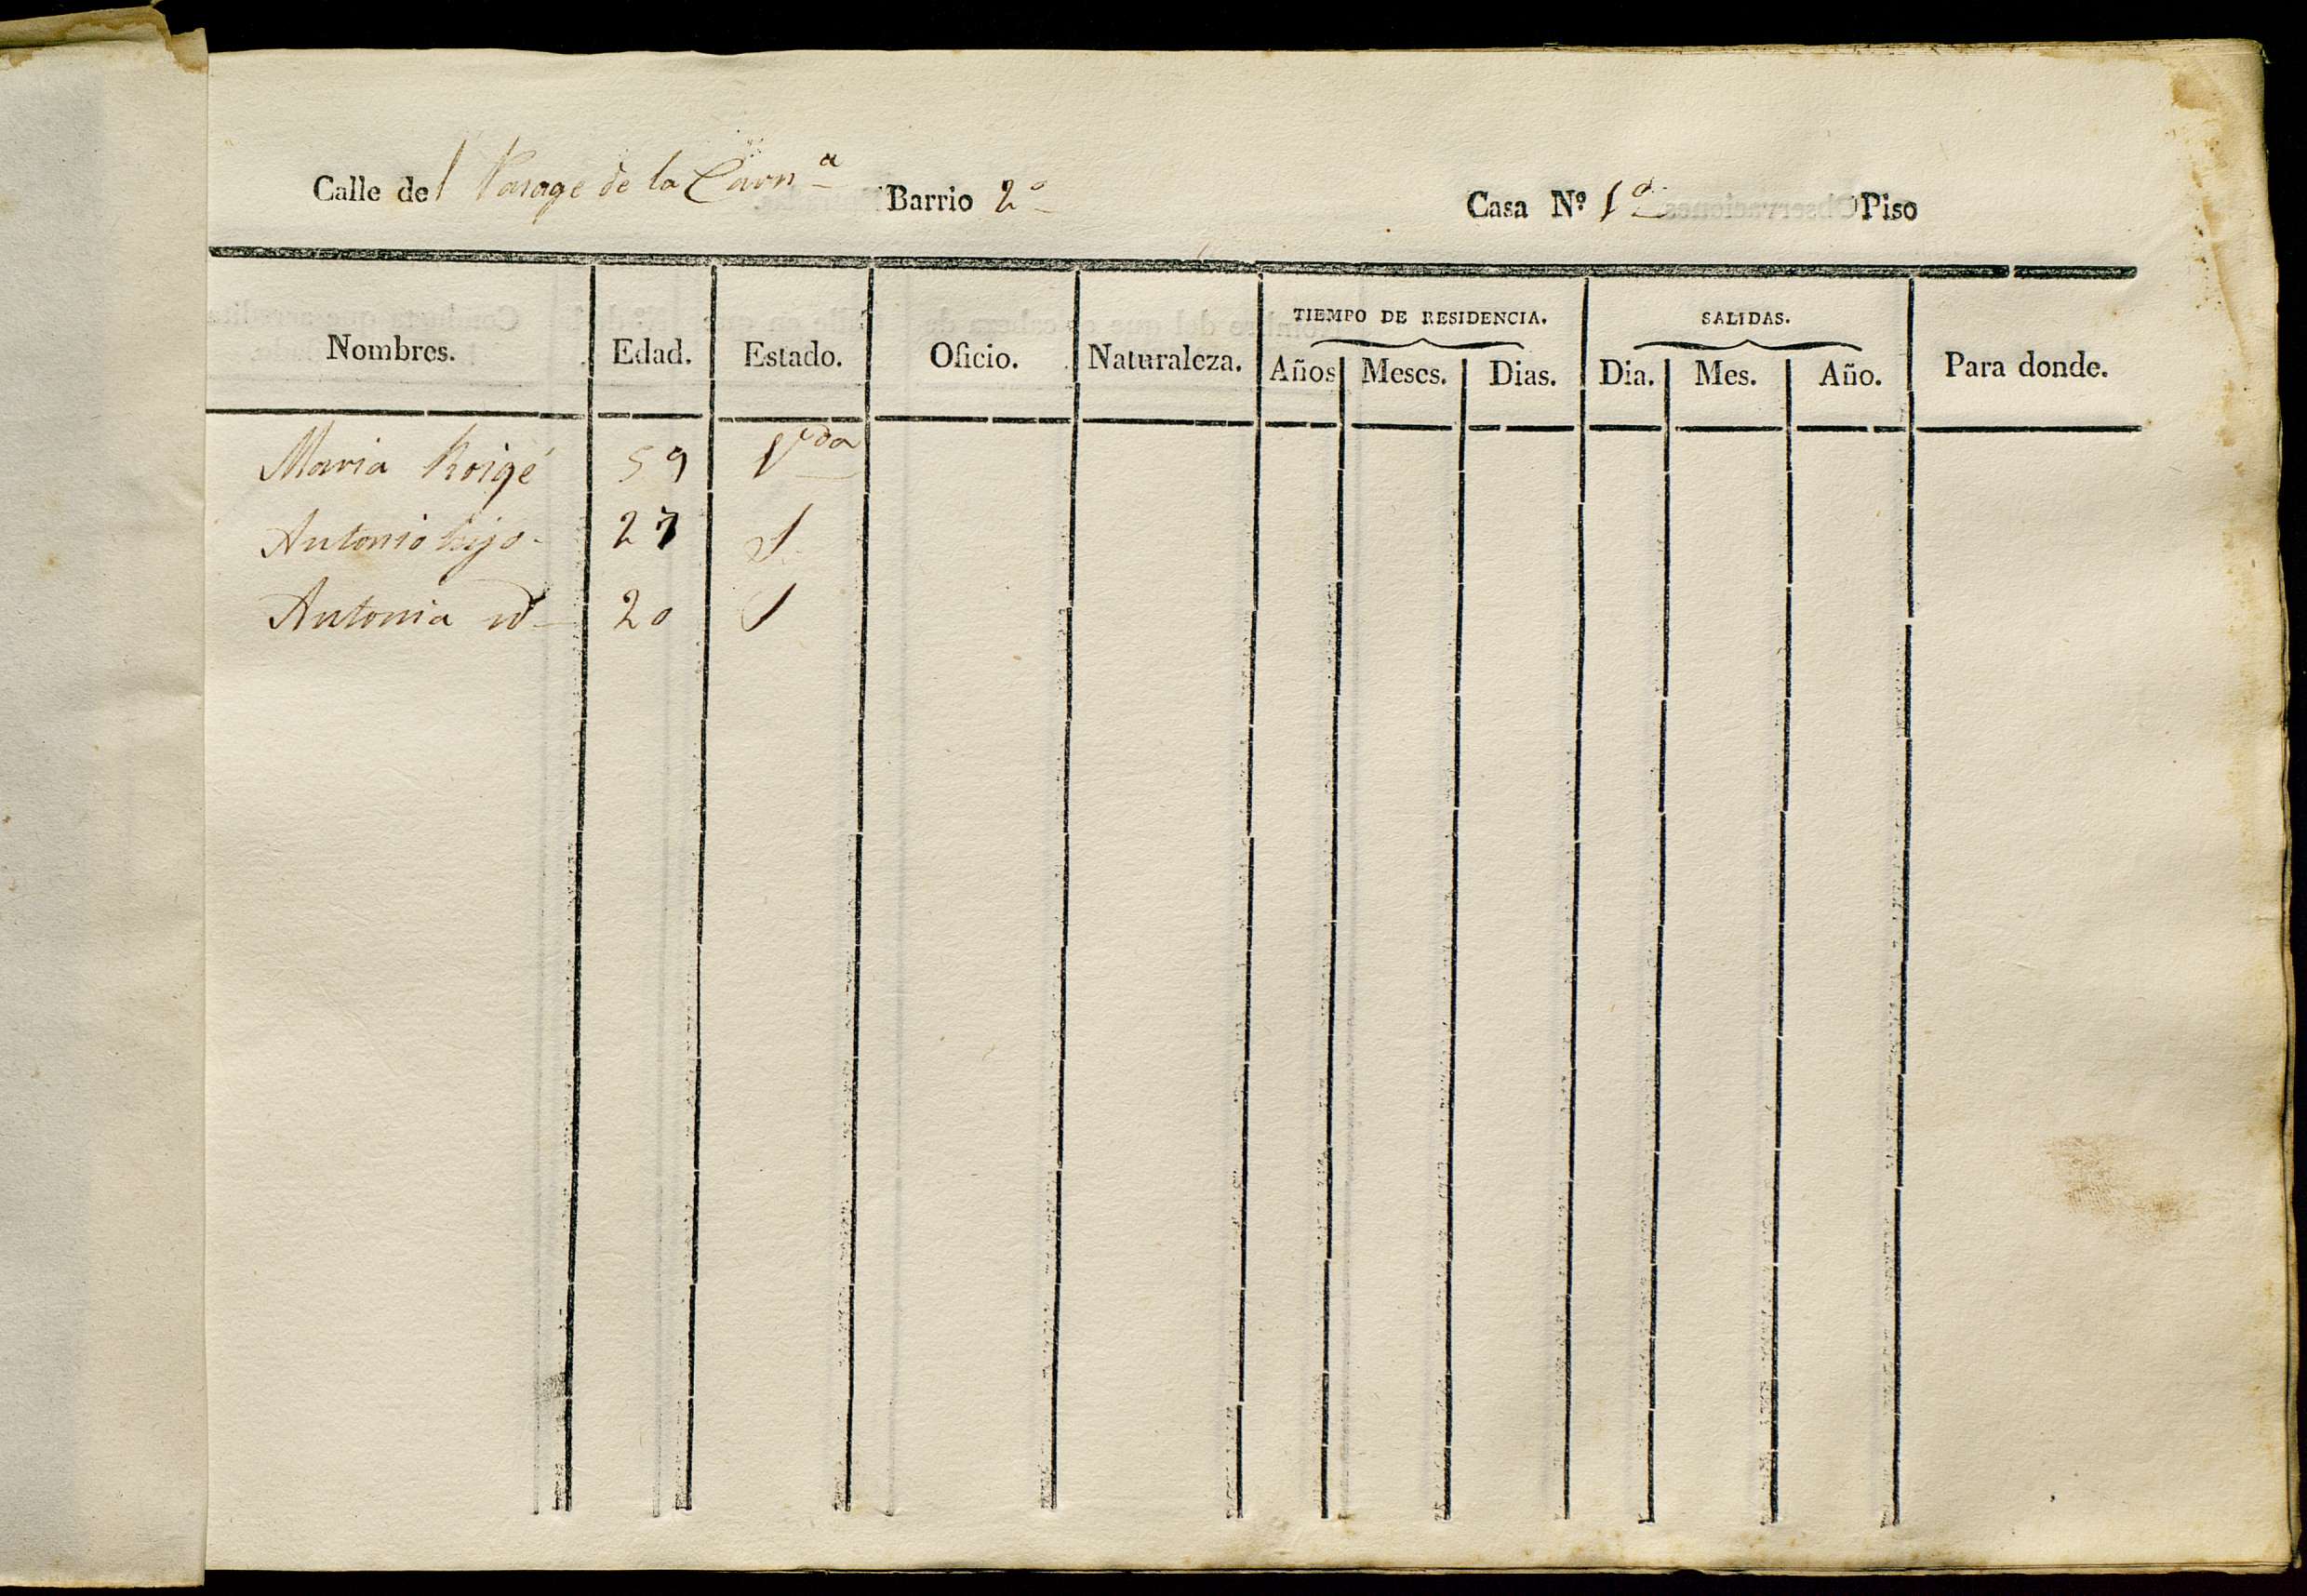 Calle del Parage de la Carn.ª Barrio 2º Casa Nº 1º Piso
Nombres. Edad. Estado. Oficio. Naturaleza. TIEMPO DE RESIDENCIA. SALIDAS. Para donde.
Años Meses. Dias. Dia. Mes. Año.
Maria Roigé 59 Vda
Antonio hijo 27 S
Antonia id 20 S